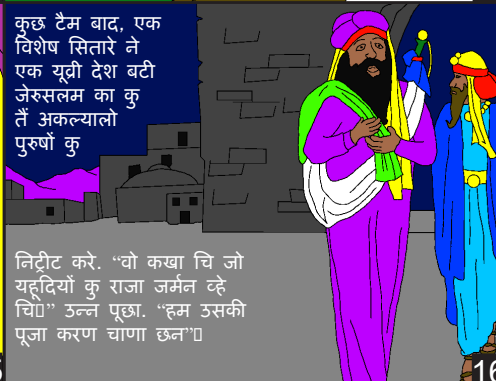 कुछ टैम बाद, एक
विशेष सितारे ने
एक यूव्री देश बटी
जेरुसलम का कु
तैं अकल्यालो
पुरुषों कु
निट्रीट करे. “वो कखा चि जो
यहूदियों कु राजा जर्मन व्हे
चि” उन्न पूछा. “हम उसकी
पूजा करण चाणा छन”
16